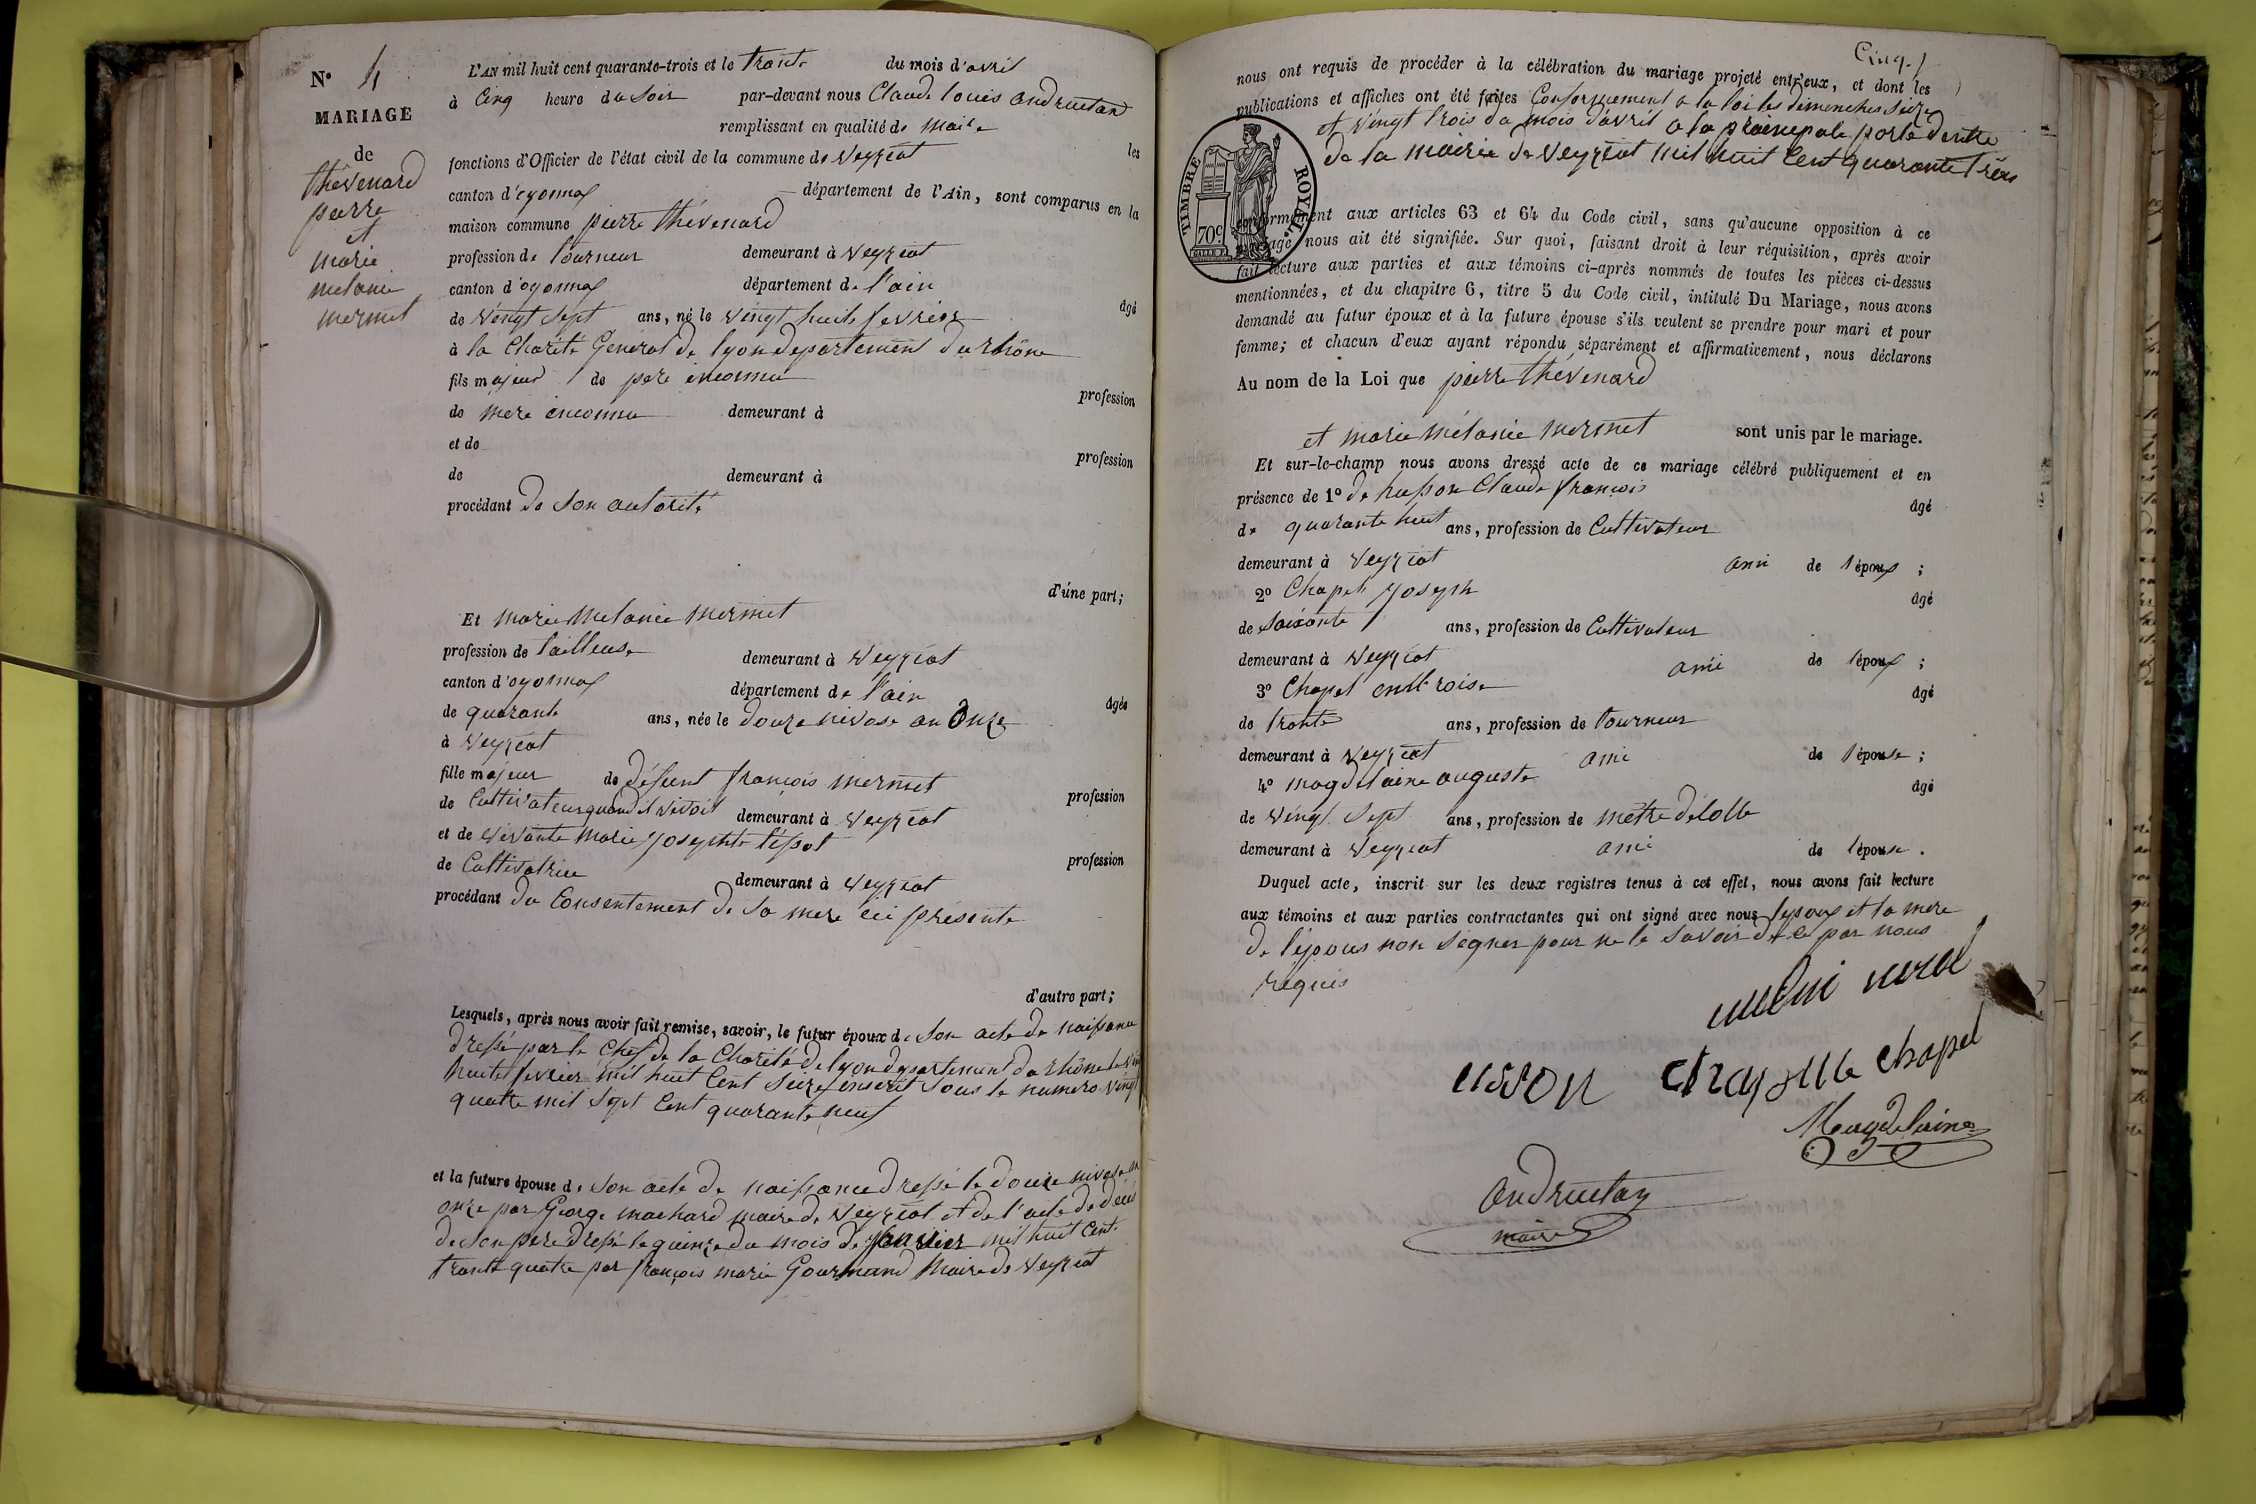 N° 4
MARIAGE
de
thévenard
pierre
et
marie
melanie
mermet
L'AN mil huit cent quarante-trois et le trante du mois d'avril
à Cinq heure du Soir par-devant nous Claude louis andruetan
remplissant en qualité de maire les
fonctions d'Officier de l'état civil de la commune de Veyziat
canton d'oyonnax département de l'Ain, sont comparus en la
maison commune pierre thévenard
profession de tourneur demeurant à Veyziat
canton d'oyonnax département de l'ain âgé
de Vingt Sept ans, né le Vingt huit fevrier
à la Charité Général de lyon departement du rhône
fils majeur de pere inconnu profession
de mere inconnu demeurant à
et de profession
de demeurant à
procédant de Son autorité
d'une part;
Et marie Melanie mermet
profession de tailleuse demeurant à Veyziat
canton d'oyonnax département de l'ain âgée
de quarante ans, née le douze nivose an Onze
à Veyziat
fille majeur de défunt françois mermet profession
de Cultivateur quand il vivoit demeurant à Veyziat
et de vivante marie josephte tissot profession
de Cultivatrice demeurant à Veyziat
procédant du Consentement de Sa mere ici présente
d'autre part;
Lesquels, après nous avoir fait remise, savoir, le futur époux de Son acte de naissance
dressé par le Chef de la Charité de lyon departement du rhône le vin
huitt fevrier mil huit Cent Seize inscrit Sous le numero vingt
quatre mil Sept Cent quarante neuf
et la future épouse de Son acte de naissance dressé le douze nivose an
onze par George machard maire de Veyziat et de l'acte de décés
de Son pere dressé le quinze du mois de janvier mil huit Cent
trante quatre par françois marie Gourmand Maire de Veyziat
Cinq
nous ont requis de procéder à la célébration du mariage projeté entr'eux, et dont les
publications et affiches ont été faites Conformement a la loi les dimenches Seize
et Vingt trois du mois d'avril a la prainepale porte dentré
de la mairie de Veyziat mil huit Cent quarante trois
TIMBRE ROYAL
70c
conformément aux articles 63 et 64 du Code civil, sans qu'aucune opposition à ce
mariage nous ait été signifiée. Sur quoi, faisant droit à leur réquisition, après avoir
fait lecture aux parties et aux témoins ci-après nommés de toutes les pièces ci-dessus
mentionnées, et du chapitre 6, titre 5 du Code civil, intitulé Du Mariage, nous avons
demandé au futur époux et à la future épouse s'ils veulent se prendre pour mari et pour
femme; et chacun d'eux ayant répondu séparément et affirmativement, nous déclarons
Au nom de la Loi que pierre thévenard
et marie mélanie mermet sont unis par le mariage.
Et sur-le-champ nous avons dressé acte de ce mariage célébré publiquement et en
présence de 1° de husson Claude françois âgé
de quarante huit ans, profession de Cultivateur
demeurant à Veyziat ami de l'époux ;
2° Chapel joseph âgé
de Soixante ans, profession de Cultivateur
demeurant à Veyziat ami de l'époux ;
3° Chapel embroise âgé
de trante ans, profession de tourneur
demeurant à Veyziat ami de l'épouse ;
4° magdelaine auguste âgé
de Vingt Sept ans, profession de mètre décolle
demeurant à Veyziat ami de l'épouse .
Duquel acte, inscrit sur les deux registres tenus à cet effet, nous avons fait lecture
aux témoins et aux parties contractantes qui ont signé avec nous lepoux et la mere
de l'épouse non Signer pour ne le Savoir de ce par nous
requis
usson
chapelle chapel
Magdelaine
andruetan
maire